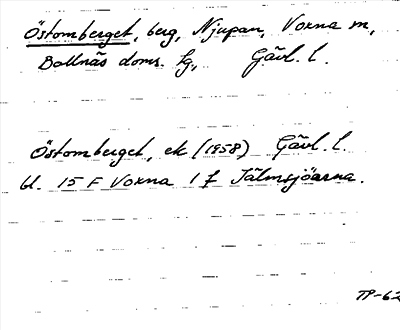 Östomberget, berg, Njupan, Voxna m,
Bollnäs doms. lg, Gävl. l.
Östomberget, ek (1958) Gävl. l.
bl. 15 F Voxna 1 f Tälmsjöarna.
TP-62